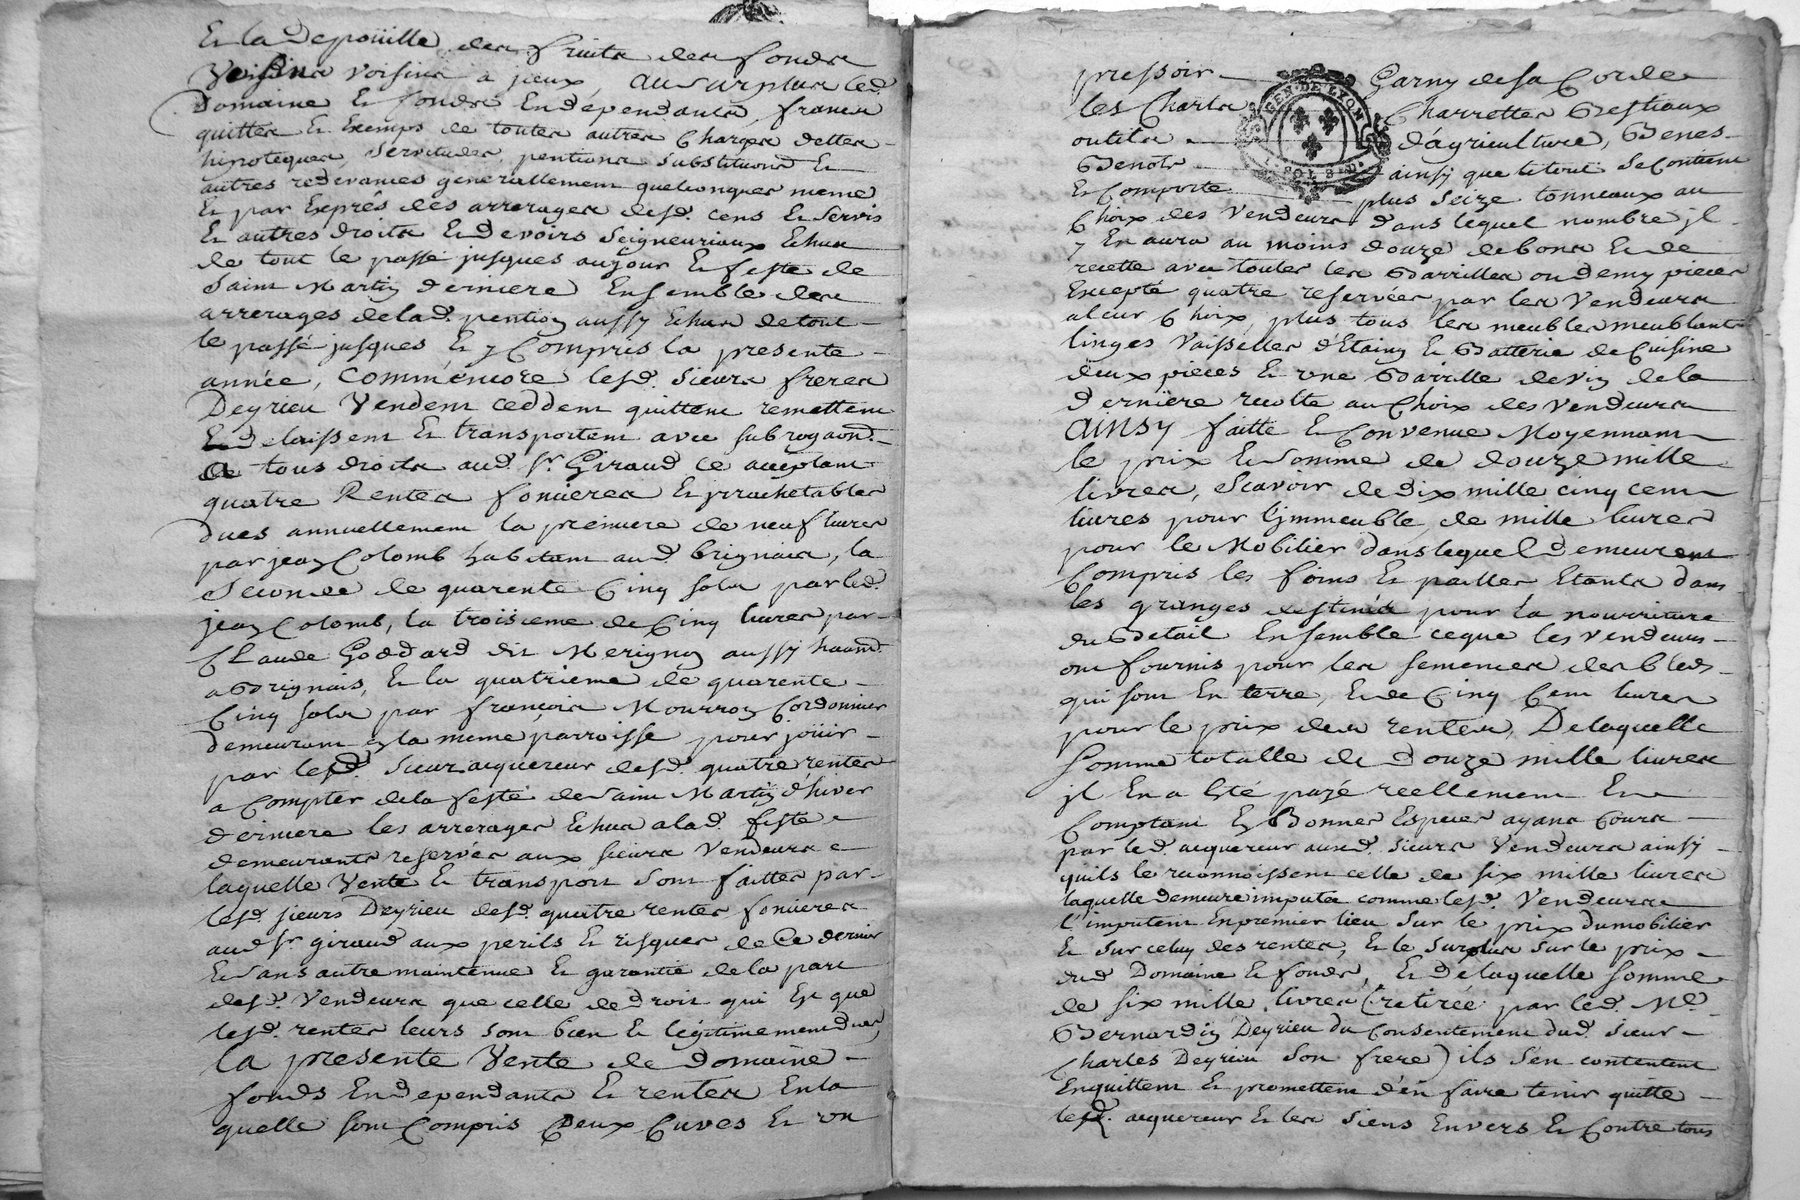 Et la Depoüille des fruits des fonds
Voisins voisins a jceux, au surplus led.
Domaine Et fonds En dépendants, francs
quittes Et Exemps de toutes autres Charges dettes
hipoteques, servitudes, pentions substitutions Et
autres redevances generallement quelconques meme
Et par Exprés des arrerages desd. cens Et servis
Et autres droits Et Devoirs Seigneuriaux Echus
de tout le passé jusques aujour Et feste de
Saint Martin derniere Ensemble des
arrerages delad. pention aussy Echus de tout
le passé jusques Et y Compris la presente
année, Comm'encore lesd. Sieurs freres
Deyrieu Vendent ceddent quittent remettent
Et Delaissent Et transportent avec subrogaon.
de tous droits aud. Sr. Giraud ce acceptant
quatre Rentes foncieres Et jrrachetables
dues annuellement la premiere de neuf livres
par jean Colomb habitant aud. brignais, la
Seconde de quarente Cinq sols par led.
jean Colomb, la troisieme de Cinq livres par
Claude Goddard dit Merigny aussy haant.
a Brignais, Et la quatrieme de quarente
Cinq sols par françois Mourron Cordonnier
demeurant En la meme parroisse pour joüir
par led. Sieur acquereur desd. quatre rentes
a Compter de la feste de Saint Martin d'hiver
derniere les arrerages Echus a lad. feste
demeurants reservés aux sieurs Vendeurs
laquelle Vente Et transport sont faittes par
lesd. sieurs Deyrieu desd. quatre rentes foncieres
aud. Sr. giraud aux perils Et risques de Ce dernier
Et sans autre maintenue Et garantie de la part
desd. Vendeurs que celle de Droit qui Est que
lesd. rentes leurs sont bien Et légitimement dues,
la presente Vente de Domaine
fonds En dependants Et rentes En la
quelle sont Compris Deux Cuves Et un
pressoir Garny de sa Corde
les Chars Charrettes Bestiaux
outils d'agriculture, Benes
Benots ainsy que le tout se Contient
Et Comporte plus seize tonneaux au
Choix des Vendeurs dans lequel nombre jl
y En aura au moins douze de bons Et de
recette avec toutes les Barrilles ou demy pieces
Excepté quatre reservées par les Vendeurs
a leur Choix, plus tous les meubles meublants
linges Vaisselles d'Etaing Et Batterie de Cuisine
deux pieces Et une Barrille de vin de la
derniere recolte au Choix des Vendeurs
AINSY faitte Et Convenue Moyennant
le prix Et somme de douze mille
livres, scavoir de Dix mille cinq cent
livres pour l'jmmeuble, de mille livres
pour le Mobilier dans lequel demeurent
Compris les foins Et pailles Etants dans
les granges destinés pour la nourriture
du Betail Ensemble ceque les vendeurs
ont fournis pour les semences des bleds
qui sont En terre, Et de Cinq Cent livres
pour le prix des rentes, De laquelle
somme totalle de Douze mille livres
jl En a Eté payé reellement Et
Comptant En Bonnes Especes ayans Cours
par led. acquereur auxd. sieurs Vendeurs ainsy
quils le reconnoissent celle de six mille livres
laquelle demeure imputée comme lesd. Vendeurs
l'imputent En premier lieu sur le prix du mobilier
Et sur celuy des rentes, Et le surplus sur le prix
dud. Domaine Et fonds, Et de laquelle somme
de six mille livres (retirée par led. Me.
Bernardin Deyrieu du Consentement dud. sieur
Charles Deyrieu son frere) ils s'en contentent
Enquittent Et promettent d'en faire tenir quitte
led. acquereur Et les siens Envers Et Contre tous
GEN. DE LYON